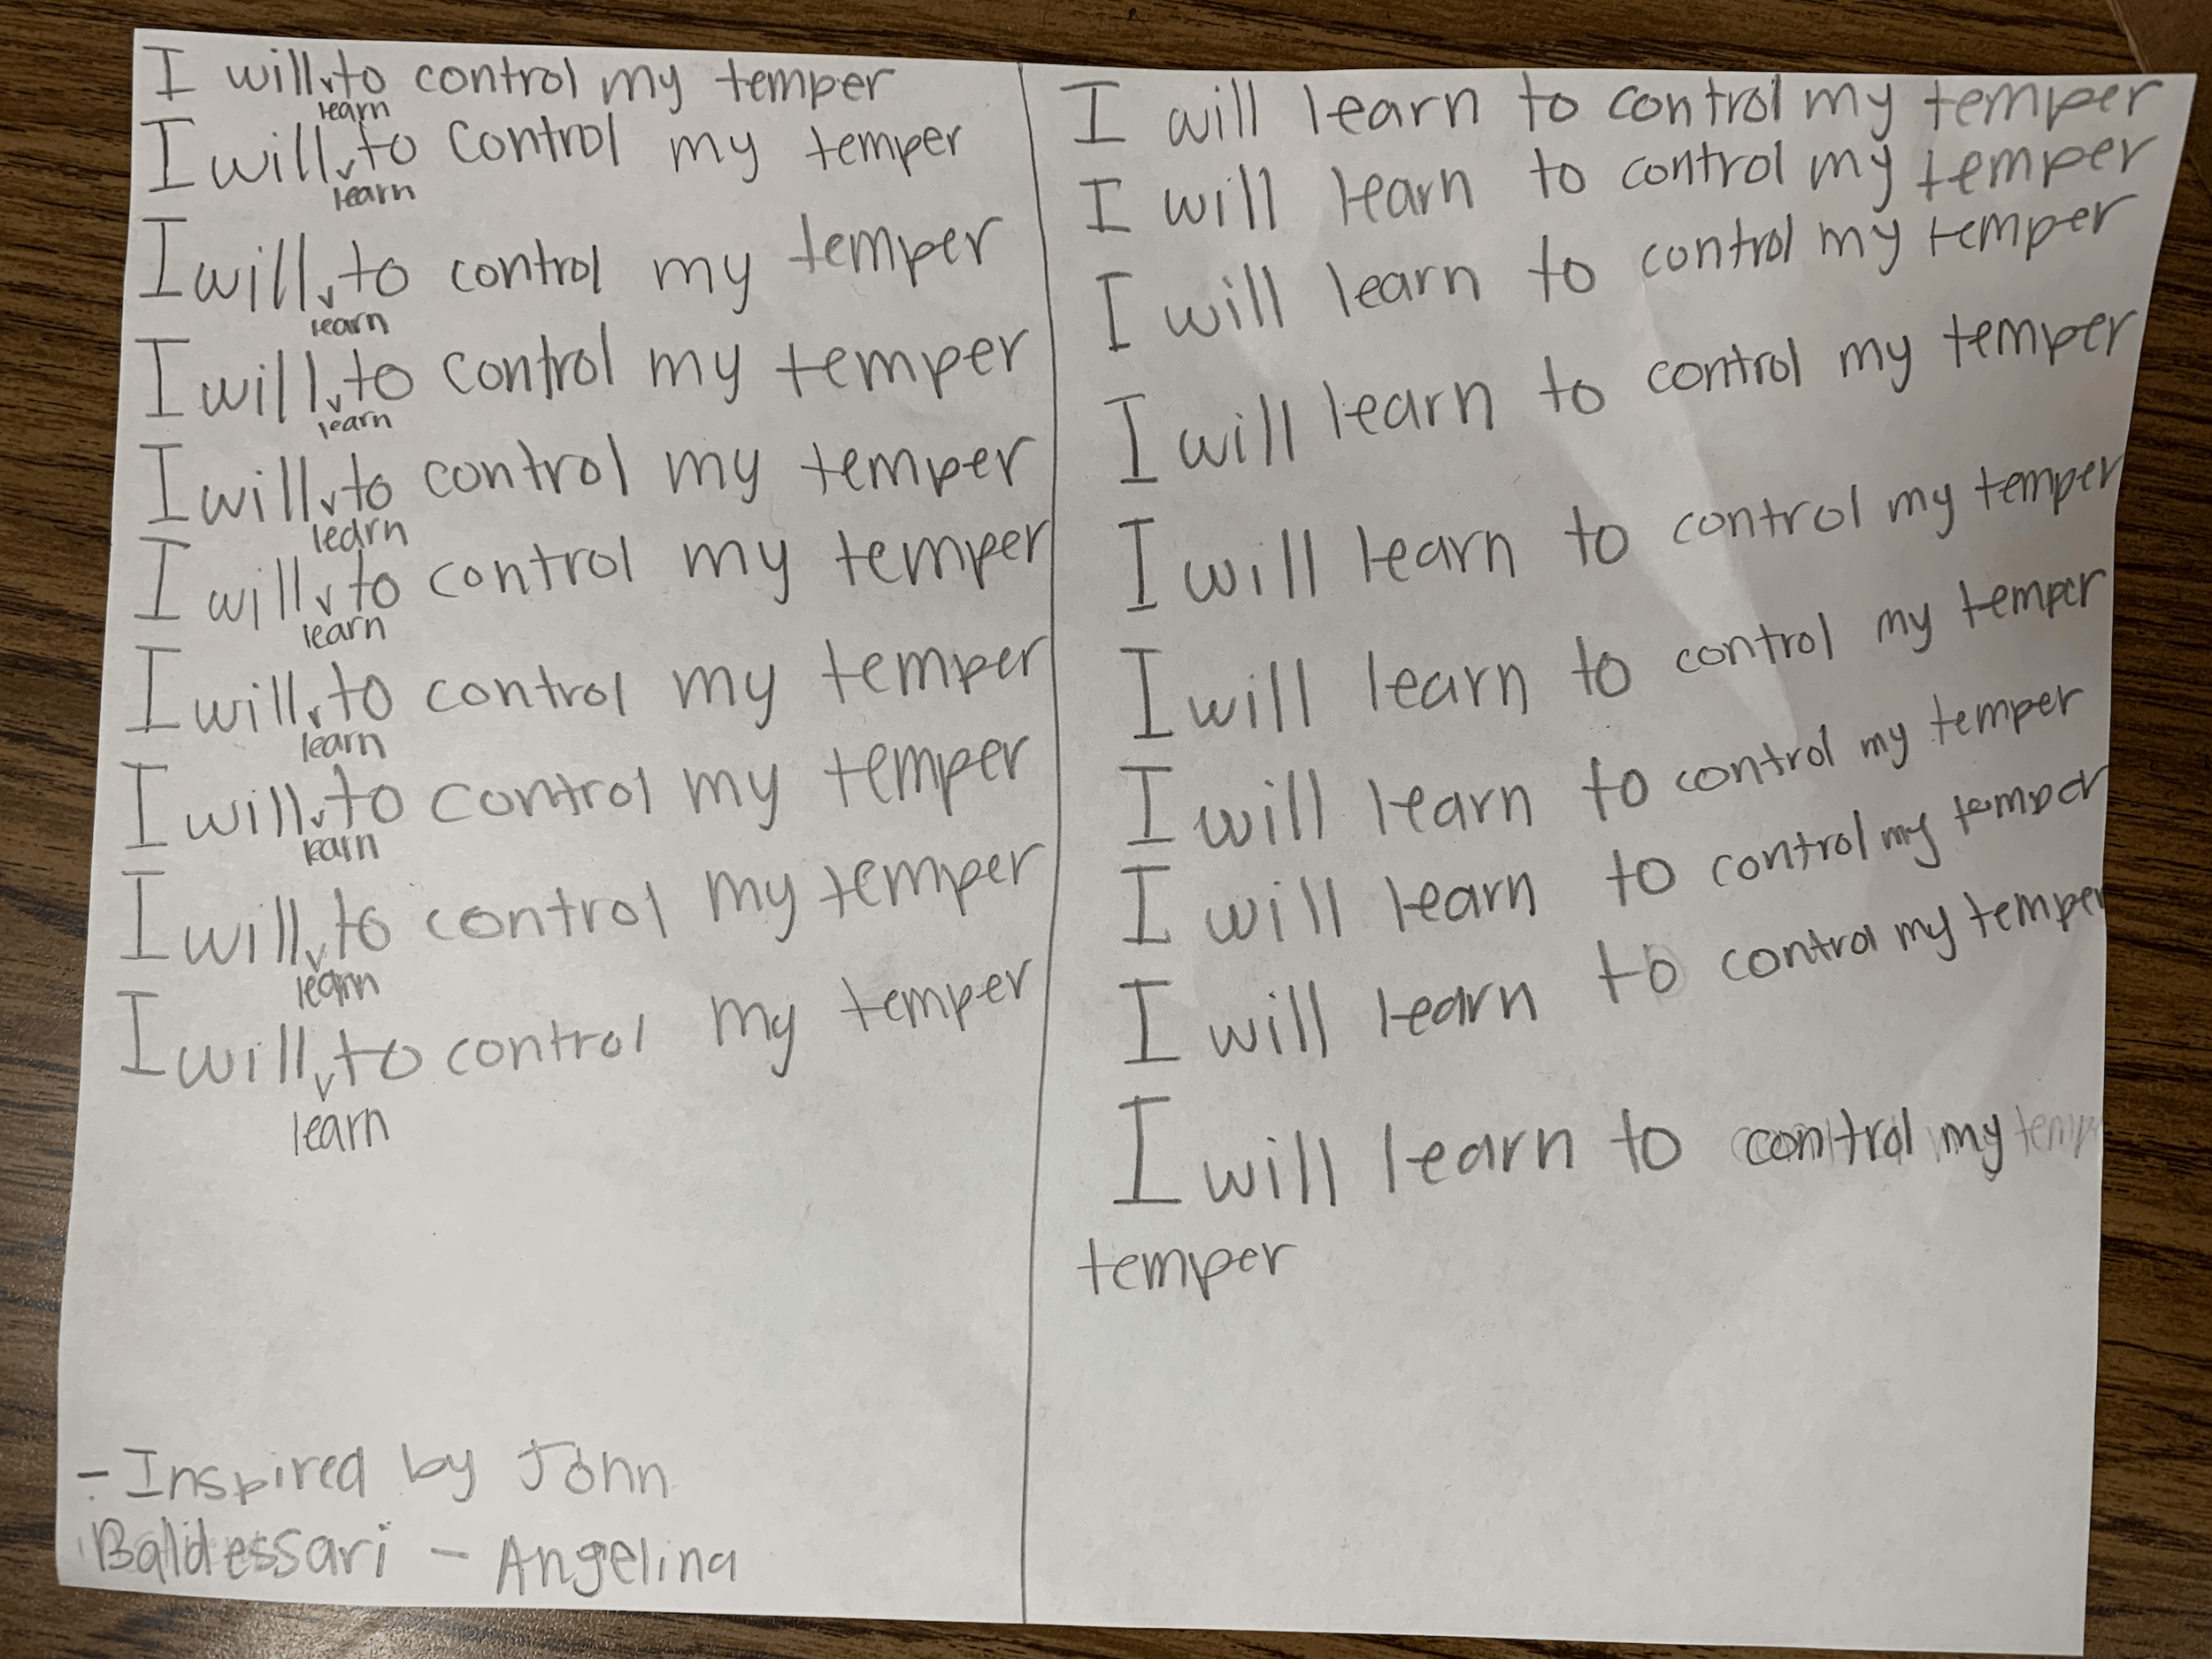 I will to control my temper
learn
I will to control my temper
learn
I will to control my temper
learn
I will to control my temper
learn
I will to control my temper
learn
I will to control my temper
learn
I will to control my temper
learn
I will to control my temper
learn
I will to control my temper
learn
I will to control my temper
learn
- Inspired by John
Baldessari - Angelina
I will learn to control my temper
I will learn to control my temper
I will learn to control my temper
I will learn to control my temper
I will learn to control my temper
I will learn to control my temper
I will learn to control my temper
I will learn to control my temper
I will learn to control my temper
I will learn to control my temp
temper